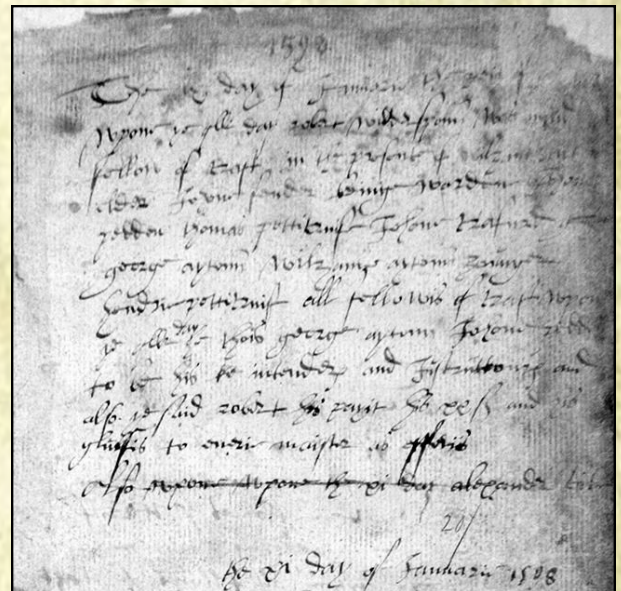 1598
The ix day of Januerii the zeir of
Upone ye ilk day robert widderspone was maid
fellow of craft in ye presens of
elder Johone fender being warden
zedden thomas pettticruif Johone
george aytone wilzame aytone zounger
hendrie petticruif all fellowis of craft upon
ye ilk day he chois george aytone Johone
to be his intenderis and instructouris and
also ye said robert hes payit his xx sh and his
gluiffis to everie maister as efferis
also upone upone the xi day alexander
20/
the xi day of Januarii 1598